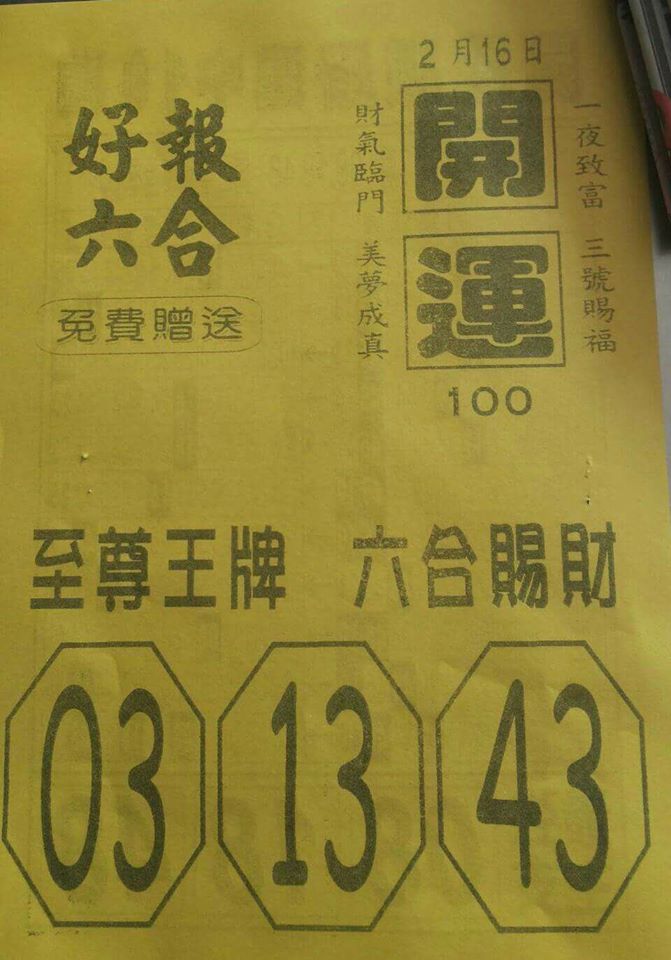 2月16日
好報
六合
免費贈送
開運
一夜致富 三號賜福
財氣臨門 美夢成真
100
至尊王牌 六合賜財
03 13 43